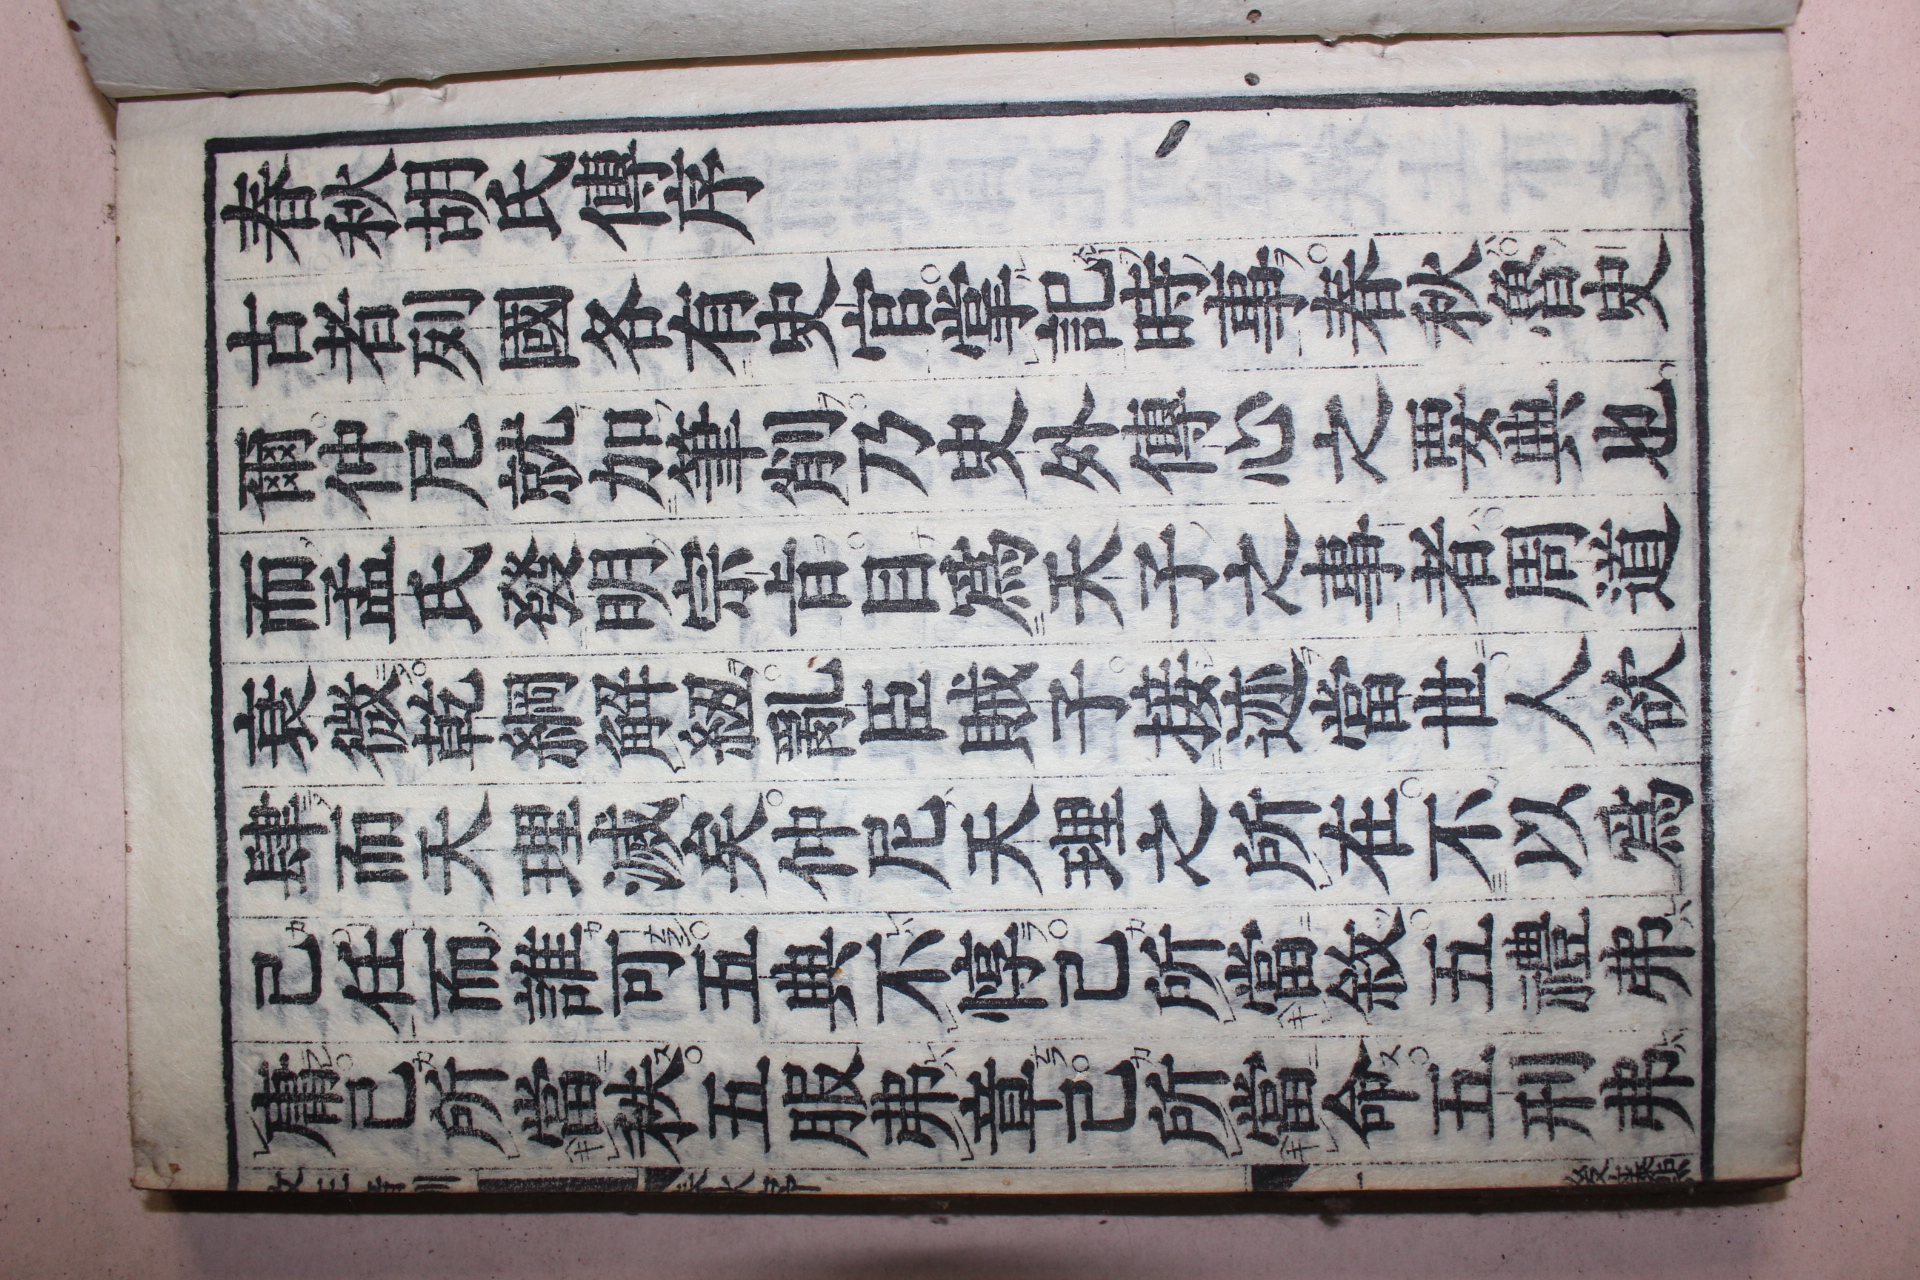 春秋胡氏傳序
古者列國各有史官掌記時事春秋魯史
爾仲尼就加筆削乃史外傳心之要典也
而孟氏發明宗㫖目爲天子之事者周道
衰微乾綱解紐亂臣賊子接迹當世人欲
肆而天理滅矣仲尼天理之所在不以爲
己任而誰可五典不惇己所當敘五禮弗
庸己所當秩五服弗章己所當命五刑弗